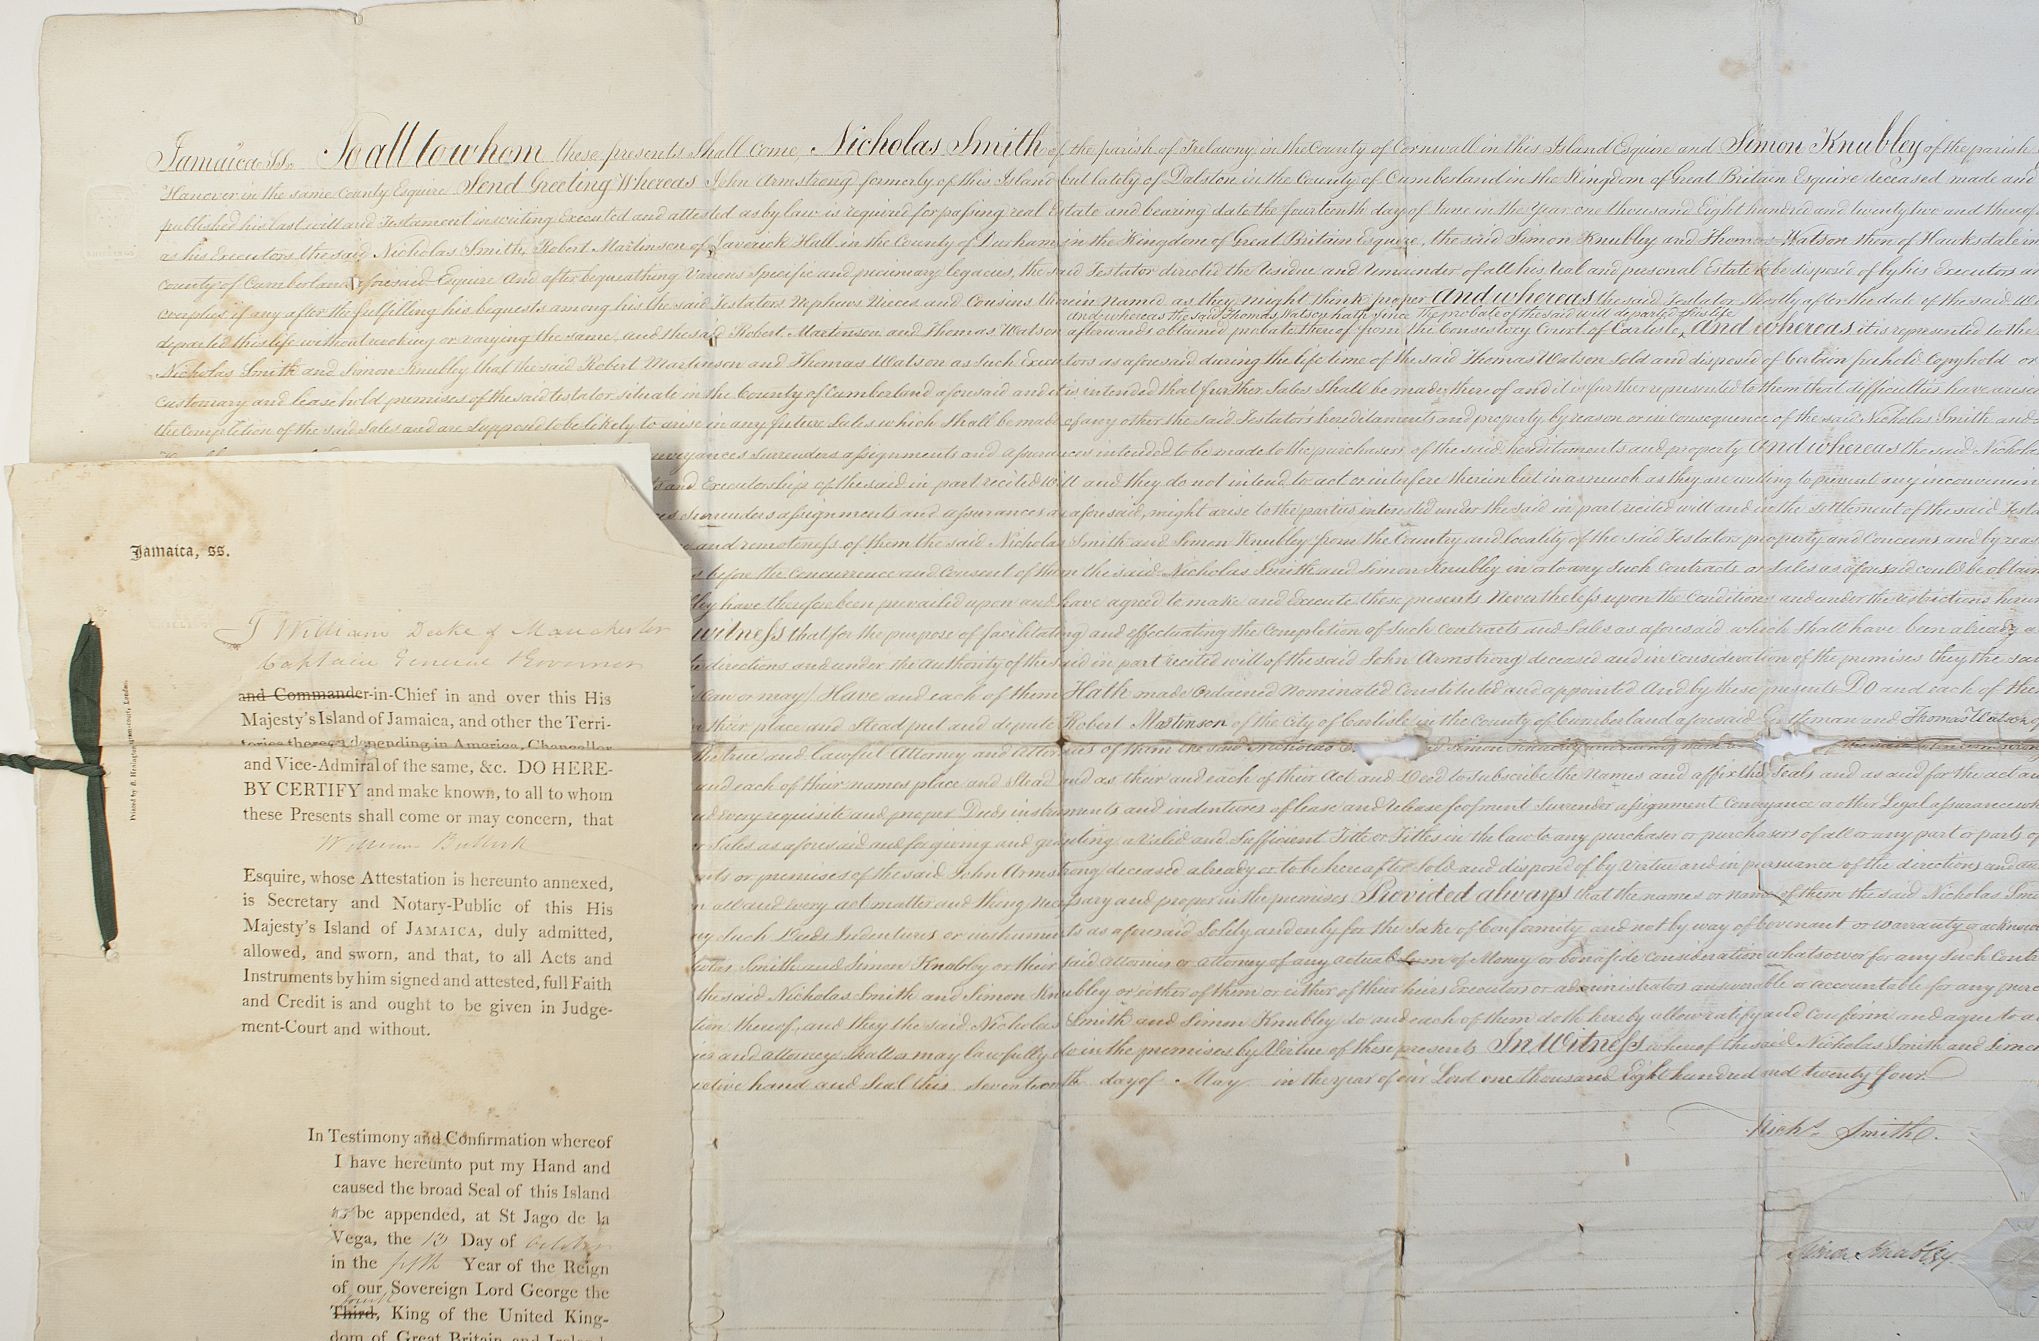 Jamaica Ss. To all to whom these presents Shall Come, Nicholas Smith of the parish of Trelawny in the County of Cornwall in this Island Esquire and Simon Knubley of the parish
Hanover in the same County Esquire Send Greeting Whereas John Armstrong formerly of this Island but lately of Dalston in the County of Cumberland in the Kingdom of Great Britain Esquire deceased made and
published his last will and Testament in writing Executed and attested as by law is required for passing real Estate and bearing date the fourteenth day of June in the Year one thousand Eight hundred and twenty two and thereof
as his Executors the said Nicholas Smith, Robert Martinson of Laverick Hall in the County of Durham in the Kingdom of Great Britain Esquire, the said Simon Knubley and Thomas Watson then of Hawksdale in
County of Cumberland aforesaid Esquire And after bequeathing Various Specific and pecuniary legacies, the said Testator directed the residue and remainder of all his real and personal Estate to be disposed of by his Executors
overplus if any after the fulfilling his bequests among his the said Testators Nephews Nieces and Cousins therein named as they might think proper And whereas the said Testator Shortly after the date of the said
and whereas the said Thomas Watson hath since the probate of the said will departed this life
departed this life without revoking or varying the same, and the said Robert Martinson and Thomas Watson afterwards obtained probate thereof from the Consistory Court of Carlisle, And whereas it is represented to the
Nicholas Smith and Simon Knubley that the said Robert Martinson and Thomas Watson as such Executors as aforesaid during the life time of the said Thomas Watson Sold and disposed of Certain freehold Copyhold or
Customary and leasehold premises of the said testator situate in the County of Cumberland aforesaid and it is intended that further Sales Shall be made thereof and it is further represented to them that difficulties have
the Completion of the said Sales and are supposed to be likely to arise in any future Sales which Shall be made of any other the said Testator's hereditaments and property by reason or in Consequence of the said Nicholas Smith and
Surrenders assignments and assurances intended to be made to the purchasers of the said hereditaments and property And whereas the said
and Executorship of the said in part recited Will and they do not intend to act or interfere therein but in as much as they are willing to prevent any
Surrenders assignments and assurances as aforesaid, might arise to the parties interested under the said in part recited will and in the settlement of the said
and remoteness of them the said Nicholas Smith and Simon Knubley from the Country and locality of the said Testators property and Concerns and by
before the Concurrence and Consent of them the said Nicholas Smith and Simon Knubley in or to any such Contracts or Sales as aforesaid could be
have therefore been prevailed upon and have agreed to make and Execute these presents Nevertheless upon the Conditions and under the restrictions
Witness that for the purpose of facilitating and effectuating the Completion of Such Contracts and Sales as aforesaid which Shall have been already
directions and under the authority of the said in part recited will of the said John Armstrong deceased and in Consideration of the premises they the
or may) Have and each of them Hath made Ordained Nominated Constituted and appointed And by these presents Do and each of
their place and Stead put and depute Robert Martinson of the City of Carlisle in the County of Cumberland aforesaid Gentleman and Thomas Watson
true and lawful Attorney and Attornies of them the said Nicholas
and each of their names place and Stead and as their and each of their Act and Deed to Subscribe the Names and affix the Seals and as and for the act
every requisite and proper Deeds instruments and indentures of lease and release feofment Surrender assignment Conveyance or other Legal assurance
Sales as aforesaid and for giving and granting a Valid and Sufficient Title or Titles in the law to any purchaser or purchasers of all or any part or parts
or premises of the said John Armstrong deceased already or to be hereafter sold and disposed of by Virtue and in pursuance of the directions and
all and every act matter and thing necessary and proper in the premises Provided always that the names or name of them the said Nicholas
Such Deeds Indentures or instruments as aforesaid Solely and only for the Sake of Conformity and not by way of Covenant or warranty or
Smith and Simon Knubley or their said Attornies or attorney of any actual Sum of Money or bonafide Consideration whatsoever for any Such
the said Nicholas Smith and Simon Knubley or either of them or either of their heirs Executors or administrators answerable or accountable for any
thereof, and they the said Nicholas Smith and Simon Knubley do and each of them doth hereby allow ratify and Confirm and agree to
and attorney shall or may lawfully do in the premises by Virtue of these presents In Witness whereof the said Nicholas Smith and
hand and Seal this Seventeenth day of May in the year of our Lord one thousand Eight hundred and twenty four.
Nichs. Smith.
Simon Knubley
Jamaica, ss.
I William Duke of Manchester
Captain General & Governor
and Commander-in-Chief in and over this His
Majesty's Island of Jamaica, and other the Terri-
tories thereon depending in America, Chancellor
and Vice-Admiral of the same, &c. DO HERE-
BY CERTIFY and make known, to all to whom
these Presents shall come or may concern, that
William Bullock
Esquire, whose Attestation is hereunto annexed,
is Secretary and Notary-Public of this His
Majesty's Island of JAMAICA, duly admitted,
allowed, and sworn, and that, to all Acts and
Instruments by him signed and attested, full Faith
and Credit is and ought to be given in Judge-
ment-Court and without.
In Testimony and Confirmation whereof
I have hereunto put my Hand and
caused the broad Seal of this Island
to be appended, at St Jago de la
Vega, the 13 Day of October
in the fifth Year of the Reign
of our Sovereign Lord George the
fourth
Third, King of the United King-
dom of Great Britain and Ireland